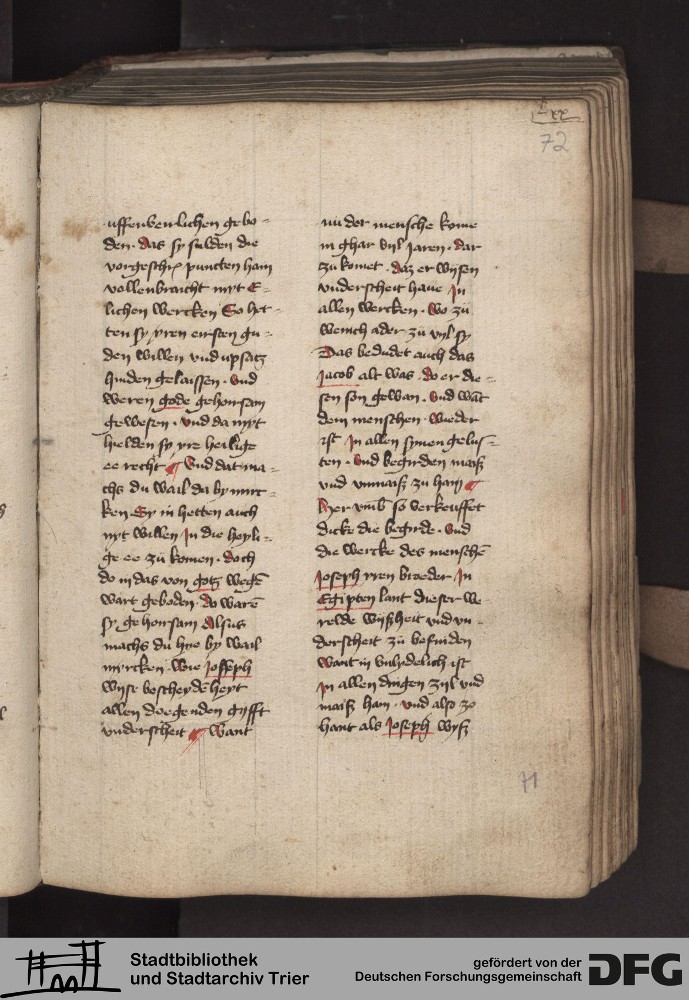 lxx
72
uffenberlichen gebo-
den. das sy sulden die
vorgeschr puncten hain
vollenbraicht myt E-
lichen wercken So het-
ten sy yren eirsten gu-
den willen vnd upsatz
hinden gelaissen. vnd
weren gode gehorisam
gewesen. vnd da myt
hielden sy yre heilige
ee recht vnd dat ma-
chs du wail da by mirc-
ken Sy in hetten auch
nyt willen In die heyli-
ge ee zü komen. doch
do in das von gotz wegē
wart geboden. do warē
sy gehorisam Alsus
machs du hye by wail
myrcken. wie Joseph
wyse bescheydēheyt
allen doegenden gyfft
vnderscheit want
nü der mensche kome
in ghar vyl Jaren. dar
zü komet. daz er wysen
vnderscheit haue In
allen wercken. wo zü
wenich ader zü vyl sy
Das bedudet auch das
Jacob alt was. do er die-
sen son gewan. vnd wāt
dem menschen wieder
ist In allen synen gelus-
ten. vnd begirden maiß
vnd vnmaiß zü hain
Her vmb so verkeuffet
dicke die begirde. vnd
die wercke des menschē
Joseph yren broeder In
Egipten lant dieser we-
relde wyßheit vnd vn-
derscheit zü befinden
Want in vnlydelich ist
In allen dingen zyl vnd
maiß hain. vnd also zo
hant als Joseph wyß
71
Stadtbibliothek
und Stadtarchiv Trier
gefördert von der
Deutschen Forschungsgemeinschaft
DFG